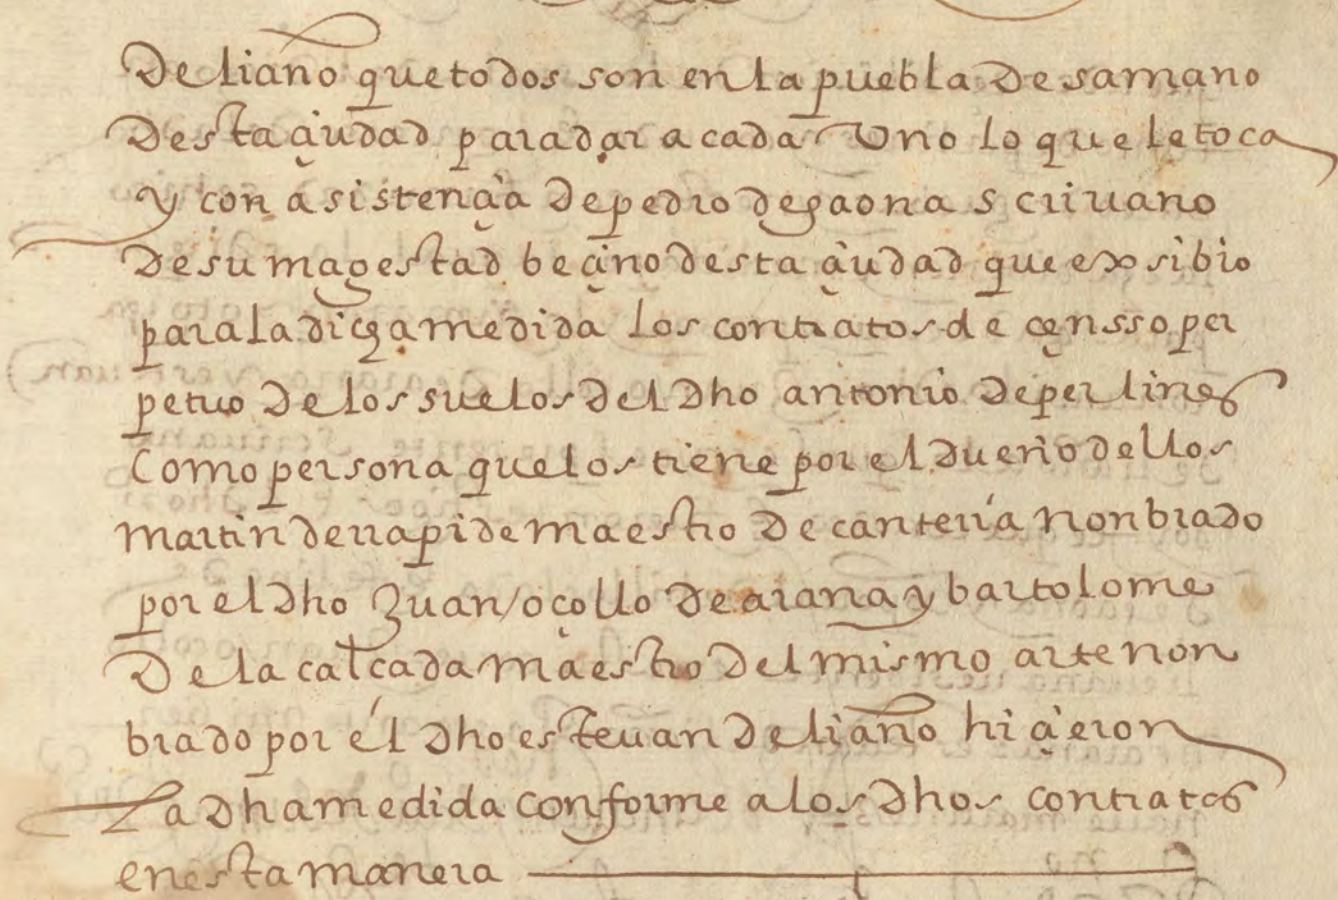 de liaño que todos son en la puebla de samano
desta çiudad para dar a cada Uno lo que le toca
y con asistençia de pedro de gaona scriuano
de su magestad beçino desta çiudad que exsibio
para la dicha medida los contratos de çensso per
petuo de los suelos del dho antonio de perlines
Como persona que los tiene por el dueño dellos
martin de rrapide maestro de cantería nonbrado
por el dho Juan oçollo de arana y bartolome
De la calcada maestro del mismo arte non
brado por él dho esteuan de liaño hiçieron
La dha medida conforme a los dhos contratos
en esta manera